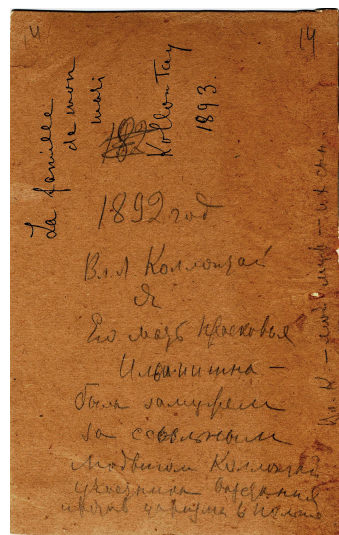 14
14
La famille
de mon
mari
Kollontay
1893.
1892 год
Влл Коллонтай
Я
Его мать Прасковья
Ильинишна –
была замужем
за ссыльным
Людвигом Коллонтай
участника восстания
против царизма в Польше
– мой муж – их сын